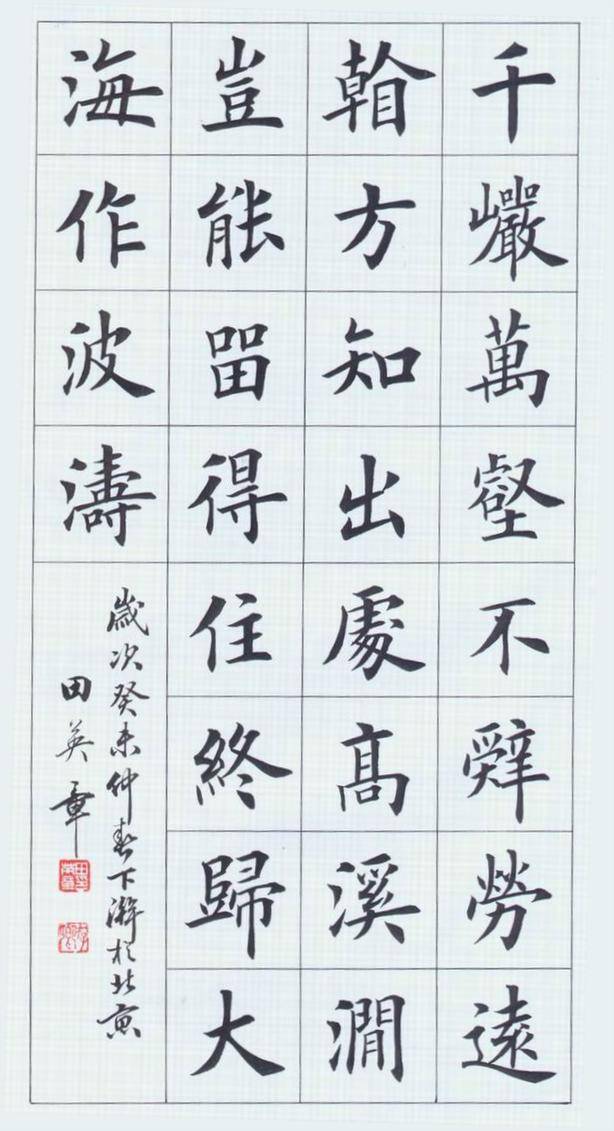 千巗萬壑不辭勞遠
看方知出處髙溪澗
豈能㽞得住終歸大
海作波濤
歲次癸未仲春下澣於北京
田英章